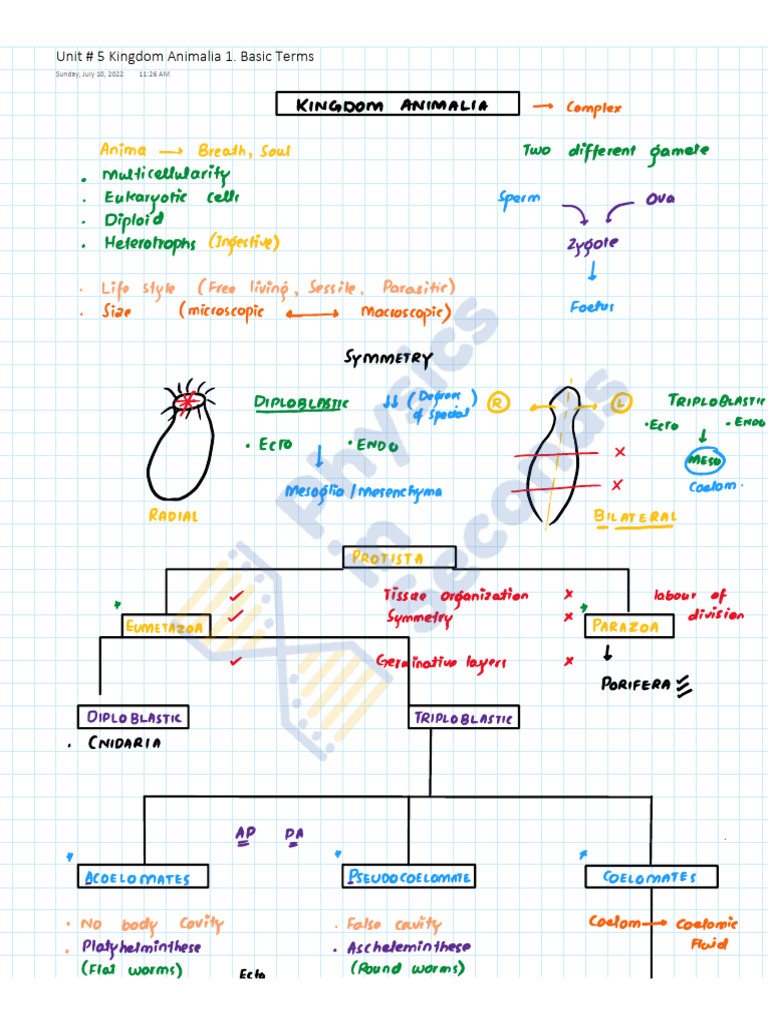 Unit # 5 Kingdom Animalia 1. Basic Terms
Sunday, July 10, 2022 11:26 AM
KINGDOM ANIMALIA → Complex
Anima → Breath, Soul
• Multicellularity
• Eukaryotic cells
• Diploid
• Heterotrophs (Ingestive)
• Life style (Free living, Sessile, Parasitic)
• Size (microscopic ↔ Macroscopic)
Two different gamete
Sperm Ova
Zygote
↓
Foetus
SYMMETRY
DIPLOBLASTIC ↓↓ (Degree of special)
• ECTO • ENDO
↓
Mesoglia / Mesenchyma
RADIAL
R L
x
x
BILATERAL
TRIPLOBLASTIC
• ECTO • ENDO
↓
MESO
Coelom.
PROTISTA
✓ Tissue organization x labour of
✓ Symmetry x division
* EUMETAZOA * PARAZOA
✓ Germinative layers x ↓
PORIFERA
DIPLOBLASTIC TRIPLOBLASTIC
• CNIDARIA
AP PA
* ACOELOMATES * PSEUDOCOELOMATE * COELOMATES
• No body Cavity
• Platyhelminthese
(Flat worms)
Ecto
• False cavity
• Ascheleminthese
(Round worms)
Coelom → Coelomic
Fluid
Physics
in
Seconds